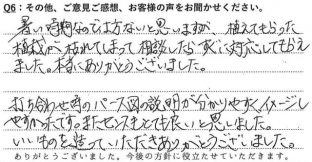 Q6：その他、ご意見ご感想、お客様の声をお聞かせください。
暑い時期なので仕方ないと思いますが、植えてもらった
植栽が枯れてしまって相談したらすぐに対応してもらえ
ました。本当にありがとうございました。
打ち合わせ時のパース図の説明が分かりやすくイメージし
やすかったです。またセンスもとても良いと思いました。
いいものを造っていただきありがとうございました。
ありがとうございました。今後の方針に役立たせていただきます。